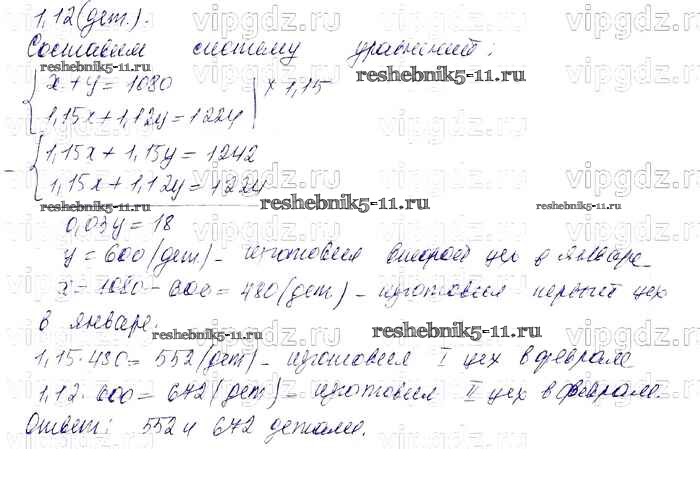 1,12(дет.).
Составим систему уравнений:
x+y=1080 | × 1,15
1,15x+1,12y=1224
- 1,15x+1,15y=1242
1,15x+1,12y=1224
0,03y=18
y=600(дет)- изготовил второй цех в январе
x=1080-600=480(дет)- изготовил первый цех
в январе.
1,15·480=552(дет)- изготовил I цех в феврале
1,12·600=672(дет)- изготовил II цех в феврале.
Ответ: 552 и 672 детали.
vipgdz.ru
reshebnik5-11.ru